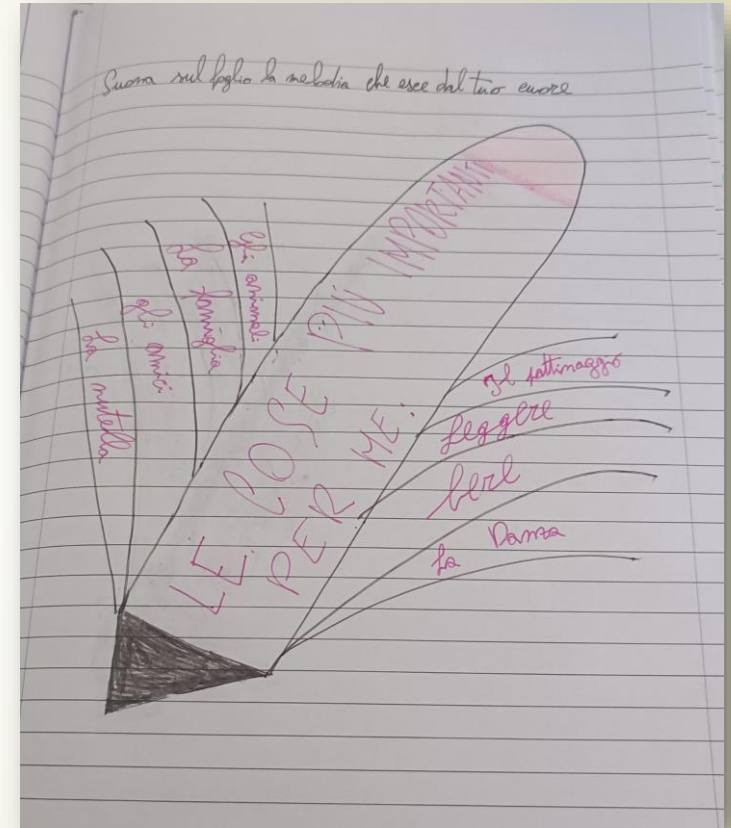 Suona sul foglio la melodia che esce dal tuo cuore
LE COSE PIÙ IMPORTANTI
PER ME:
La nutella
gli amici
La famiglia
Gli animali
Il pattinaggio
leggere
bere
La Danza